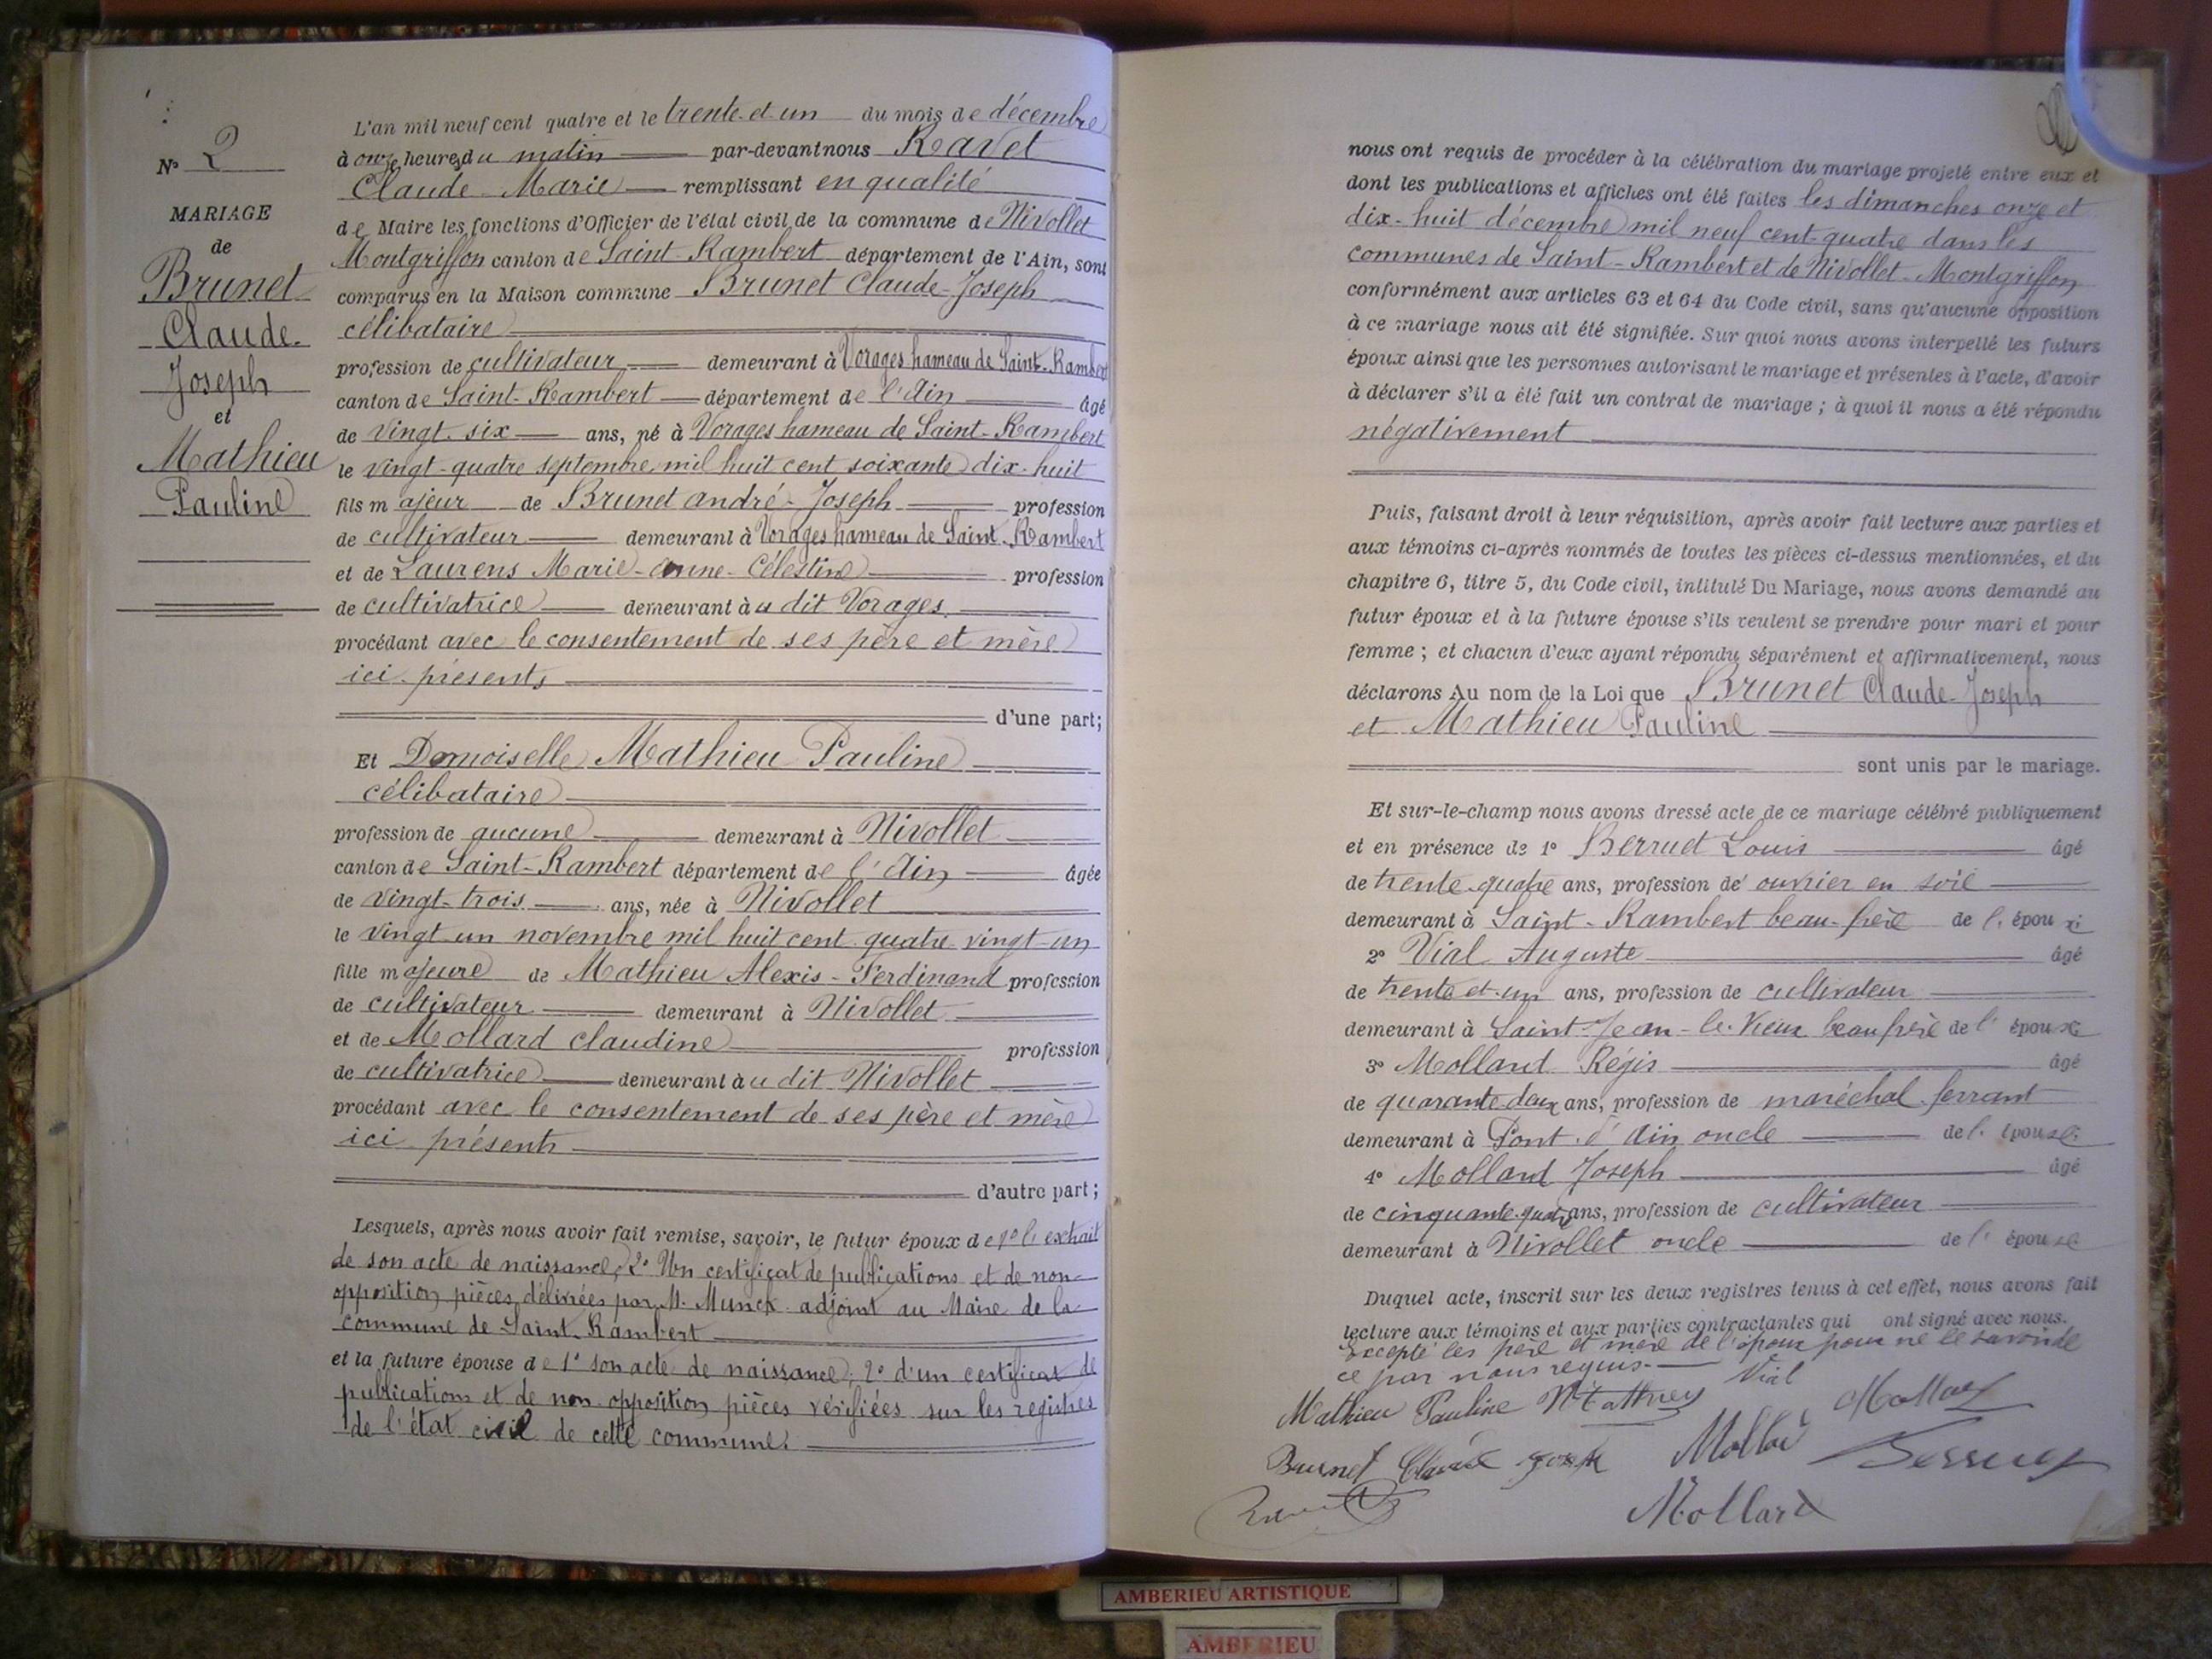 N° 2
MARIAGE
de
Brunet
Claude-
Joseph
et
Mathieu
Pauline
L'an mil neuf cent quatre et le trente-et-un du mois de décembre
à onze heures du matin par-devant nous Ravet
Claude-Marie remplissant en qualité
de Maire les fonctions d'Officier de l'état civil de la commune de Nivollet
Montgriffon canton de Saint-Rambert département de l'Ain, sont
comparus en la Maison commune Brunet Claude-Joseph
célibataire
profession de cultivateur demeurant à Vorages hameau de Saint-Rambert
canton de Saint-Rambert département de l'Ain âgé
de vingt-six ans, né à Vorages hameau de Saint-Rambert
le vingt-quatre septembre mil huit cent soixante dix-huit
fils majeur de Brunet andré-Joseph profession
de cultivateur demeurant à Vorages hameau de Saint-Rambert
et de Laurens Marie-anne-Célestine profession
de cultivatrice demeurant àu dit Vorages
procédant avec le consentement de ses père et mère
ici présents
d'une part;
Et Demoiselle Mathieu Pauline
célibataire
profession de aucune demeurant à Nivollet
canton de Saint-Rambert département de l'Ain âgée
de vingt-trois ans, née à Nivollet
le vingt-un novembre mil huit cent quatre vingt-un
fille majeure de Mathieu Alexis-Ferdinand profession
de cultivateur demeurant à Nivollet
et de Mollard claudine profession
de cultivatrice demeurant àu dit Nivollet
procédant avec le consentement de ses père et mère
ici présents
d'autre part;
Lesquels, après nous avoir fait remise, savoir, le futur époux de 1° l'extrait
de son acte de naissance, 2° Un certificat de publications et de non-
opposition pièces délivrées par M. Munck adjoint au Maire de la
commune de Saint-Rambert
et la future épouse de 1° son acte de naissance; 2° d'un certificat de
publications et de non opposition pièces vérifiées sur les registres
de l'état civil de cette commune.
nous ont requis de procéder à la célébration du mariage projeté entre eux et
dont les publications et affiches ont été faites les dimanches onze et
dix-huit décembre mil neuf cent-quatre dans les
communes de Saint-Rambert et de Nivollet-Montgriffon
conformément aux articles 63 et 64 du Code civil, sans qu'aucune opposition
à ce mariage nous ait été signifiée. Sur quoi nous avons interpellé les futurs
époux ainsi que les personnes autorisant le mariage et présentes à l'acte, d'avoir
à déclarer s'il a été fait un contrat de mariage; à quoi il nous a été répondu
négativement
Puis, faisant droit à leur réquisition, après avoir fait lecture aux parties et
aux témoins ci-après nommés de toutes les pièces ci-dessus mentionnées, et du
chapitre 6, titre 5, du Code civil, intitulé Du Mariage, nous avons demandé au
futur époux et à la future épouse s'ils veulent se prendre pour mari et pour
femme; et chacun d'eux ayant répondu séparément et affirmativement, nous
déclarons Au nom de la Loi que Brunet Claude-Joseph
et Mathieu Pauline
sont unis par le mariage.
Et sur-le-champ nous avons dressé acte de ce mariage célébré publiquement
et en présence de 1° Berruet Louis âgé
de trente-quatre ans, profession de ouvrier en soie
demeurant à Saint-Rambert beau-frère de l'époux
2° Vial Auguste âgé
de trente-et-un ans, profession de cultivateur
demeurant à Saint-Jean-le-Vieux beau frère de l'époux
3° Mollard Régis âgé
de quarante deux ans, profession de maréchal-ferrant
demeurant à Pont-d'Ain oncle de l'épouse
4° Mollard Joseph âgé
de cinquante-quatre ans, profession de cultivateur
demeurant à Nivollet oncle de l'épouse
Duquel acte, inscrit sur les deux registres tenus à cet effet, nous avons fait
lecture aux témoins et aux parties contractantes qui ont signé avec nous.
Excepté les père et mère de l'époux pour ne le savoir de
ce par nous requis. Vial
Mathieu Pauline
Brunet Claude
Mollard
AMBERIEU ARTISTIQUE
AMBERIEU